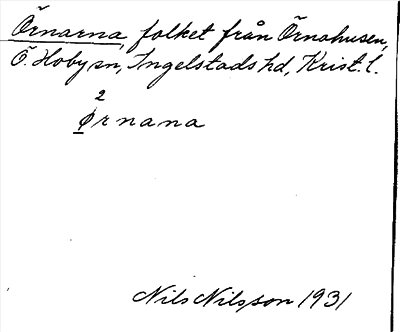 Örnarna, folket från Örnahusen,
Ö. Hoby sn, Ingelstads hd, Krist. l.
2
Ørnana
Nils Nilsson 1931